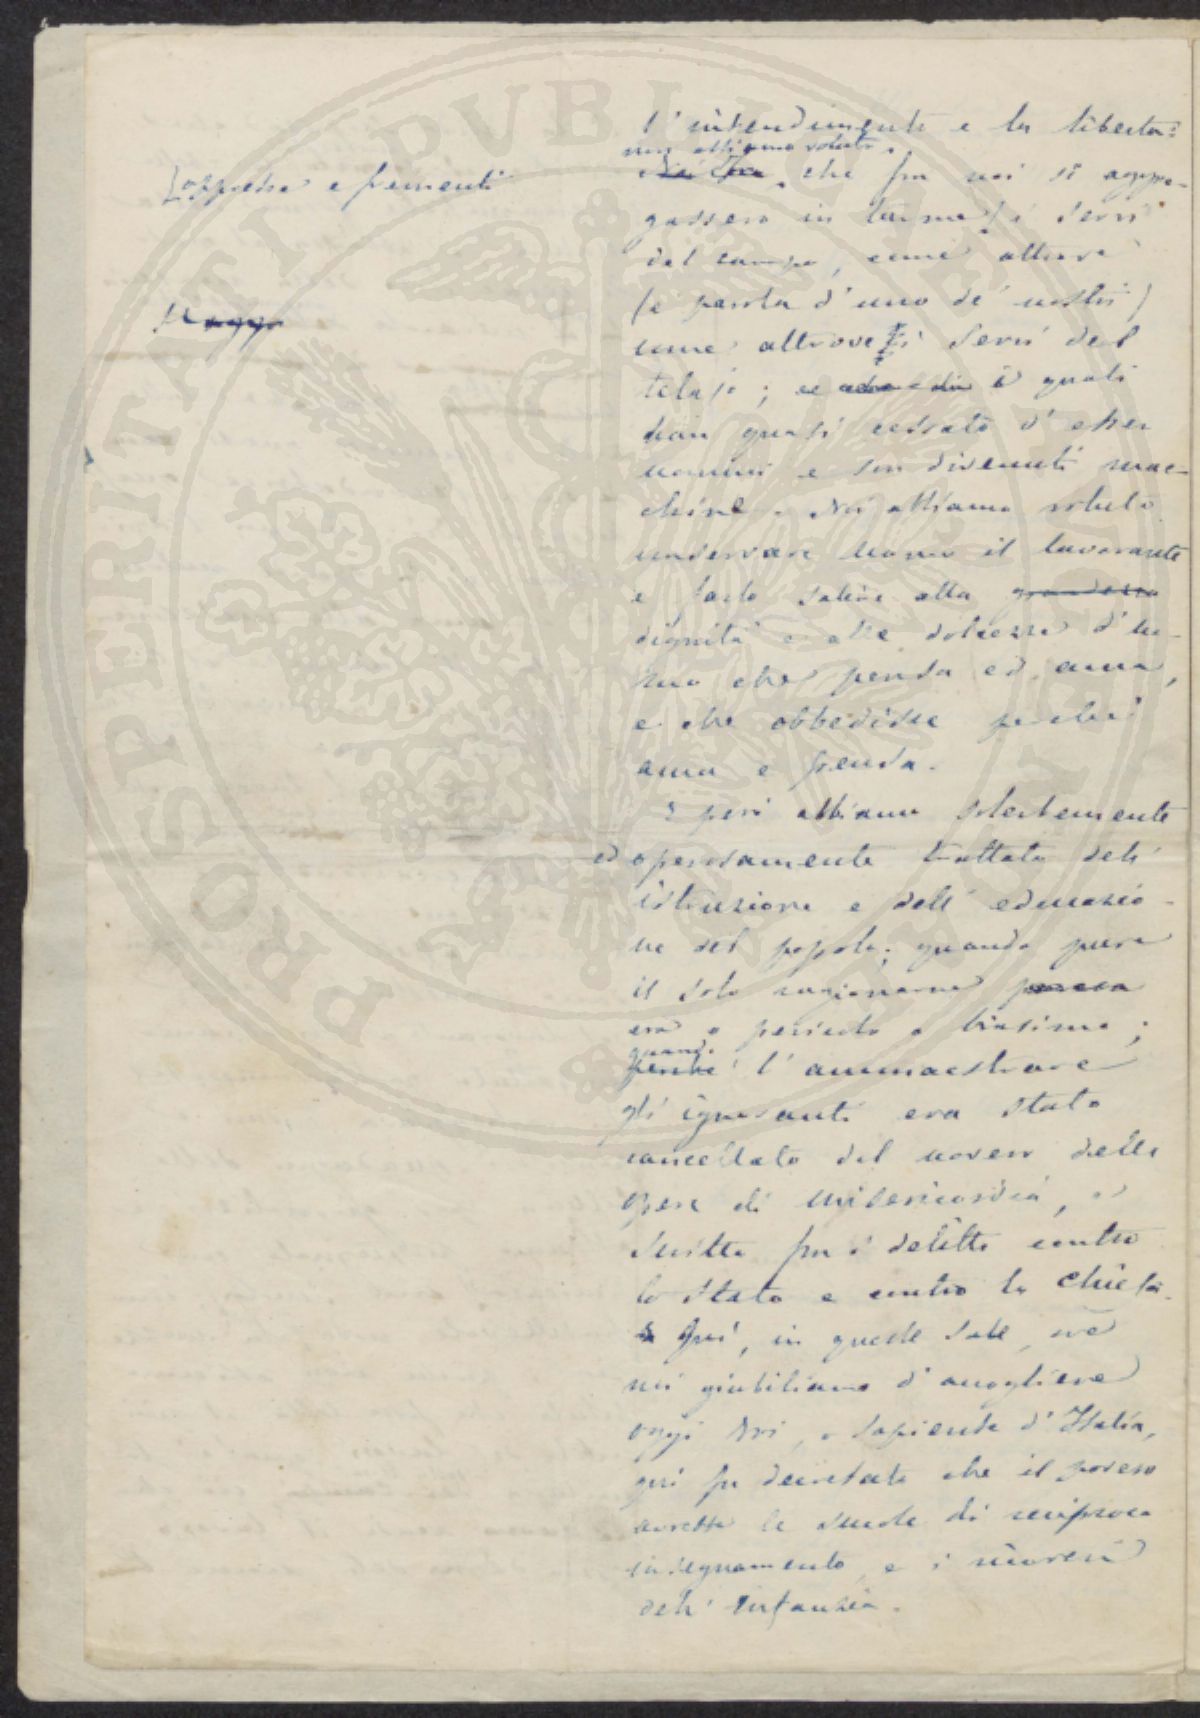 l'intendimento e la libertà:
non abbiamo voluto
che fra noi si aggre-
gassero in turme i servi
del campo, come altrove
(e parola d'uno de' nostri)
come altrove i servi del
telajo; i quali
han quasi cessato d'esser
uomini e son divenuti mac-
chine. Noi abbiamo voluto
conservare uomo il lavorante
e farlo salire alla grandezza
dignità e alle dolcezze d'uo-
mo che pensa ed ama,
e che obbedisce perché
ama e pensa.
E però abbiamo solertemente
ed operosamente trattato dell'
istruzione e dell'educazio-
ne del popolo; quando pure
il solo ragionarne pareva
era o pericolo o biasimo;
quando
perché l'ammaestrare
gl'ignoranti era stato
cancellato dal novero delle
opere di misericordia, e
scritto fra i delitti contro
lo Stato e contro la Chiesa.
E Qui, in queste sale, ove
noi giubiliamo d'accogliere
oggi Voi, o Sapienti d'Italia,
qui fu decretato che il povero
avrebbe le scuole di reciproco
insegnamento, e i ricoveri
dell'infanzia.
[oppressi e frementi
PROSPERITATI PVBLICAE